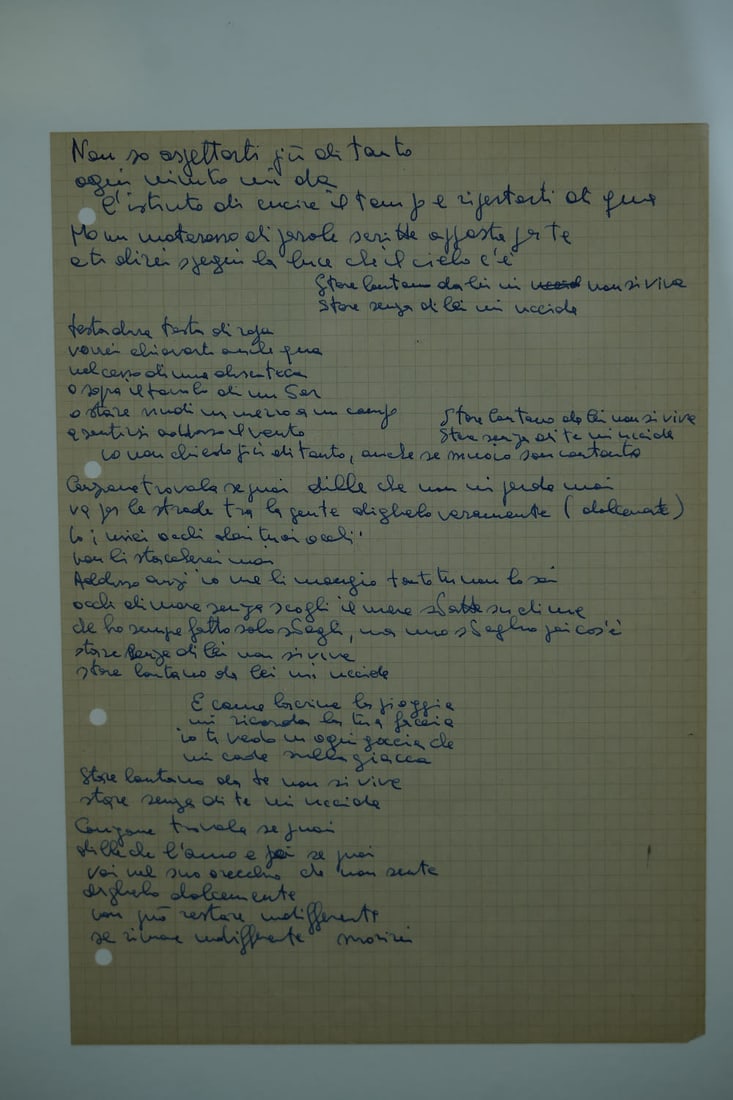 Non so aspettarti più di tanto
ogni minuto mi dà
l'istinto di cucire il tempo e riportarti di qua
Ho un materasso di parole scritte apposta per te
e ti direi spegni la luce che il cielo c'è
Stare lontano da lei non si vive
Stare senza di lei mi uccide
testa dura testa di rapa
vorrei anche qua
nel cesso di una discoteca
o sopra il tavolo di un bar
o stare nudi in mezzo a un campo
e sentirsi addosso il vento
Stare lontano da lei non si vive
Stare senza di te mi uccide
io non chiedo più di tanto, anche se muoio son contento
Canzone trovala se puoi dille che non mi perda mai
va per le strade tra la gente diglielo veramente (dolcemente)
io i miei occhi dai tuoi occhi
non li staccherei mai
Addosso anzi io me li mangio tanto tu non lo sai
occhi di mare senza scogli il mare sbatte su di me
che ho sempre fatto solo sbagli, ma uno sbaglio poi cos'è
stare senza di lei non si vive
stare lontano da lei mi uccide
E come lacrime la pioggia
mi ricorda la tua faccia
io ti vedo in ogni goccia che
mi cade sulla giacca
Stare lontano da te non si vive
stare senza di te mi uccide
Canzone trovala se puoi
dille che l'amo e poi se puoi
vai nel suo orecchio che non sente
diglielo dolcemente
non può restare indifferente
se rimane indifferente